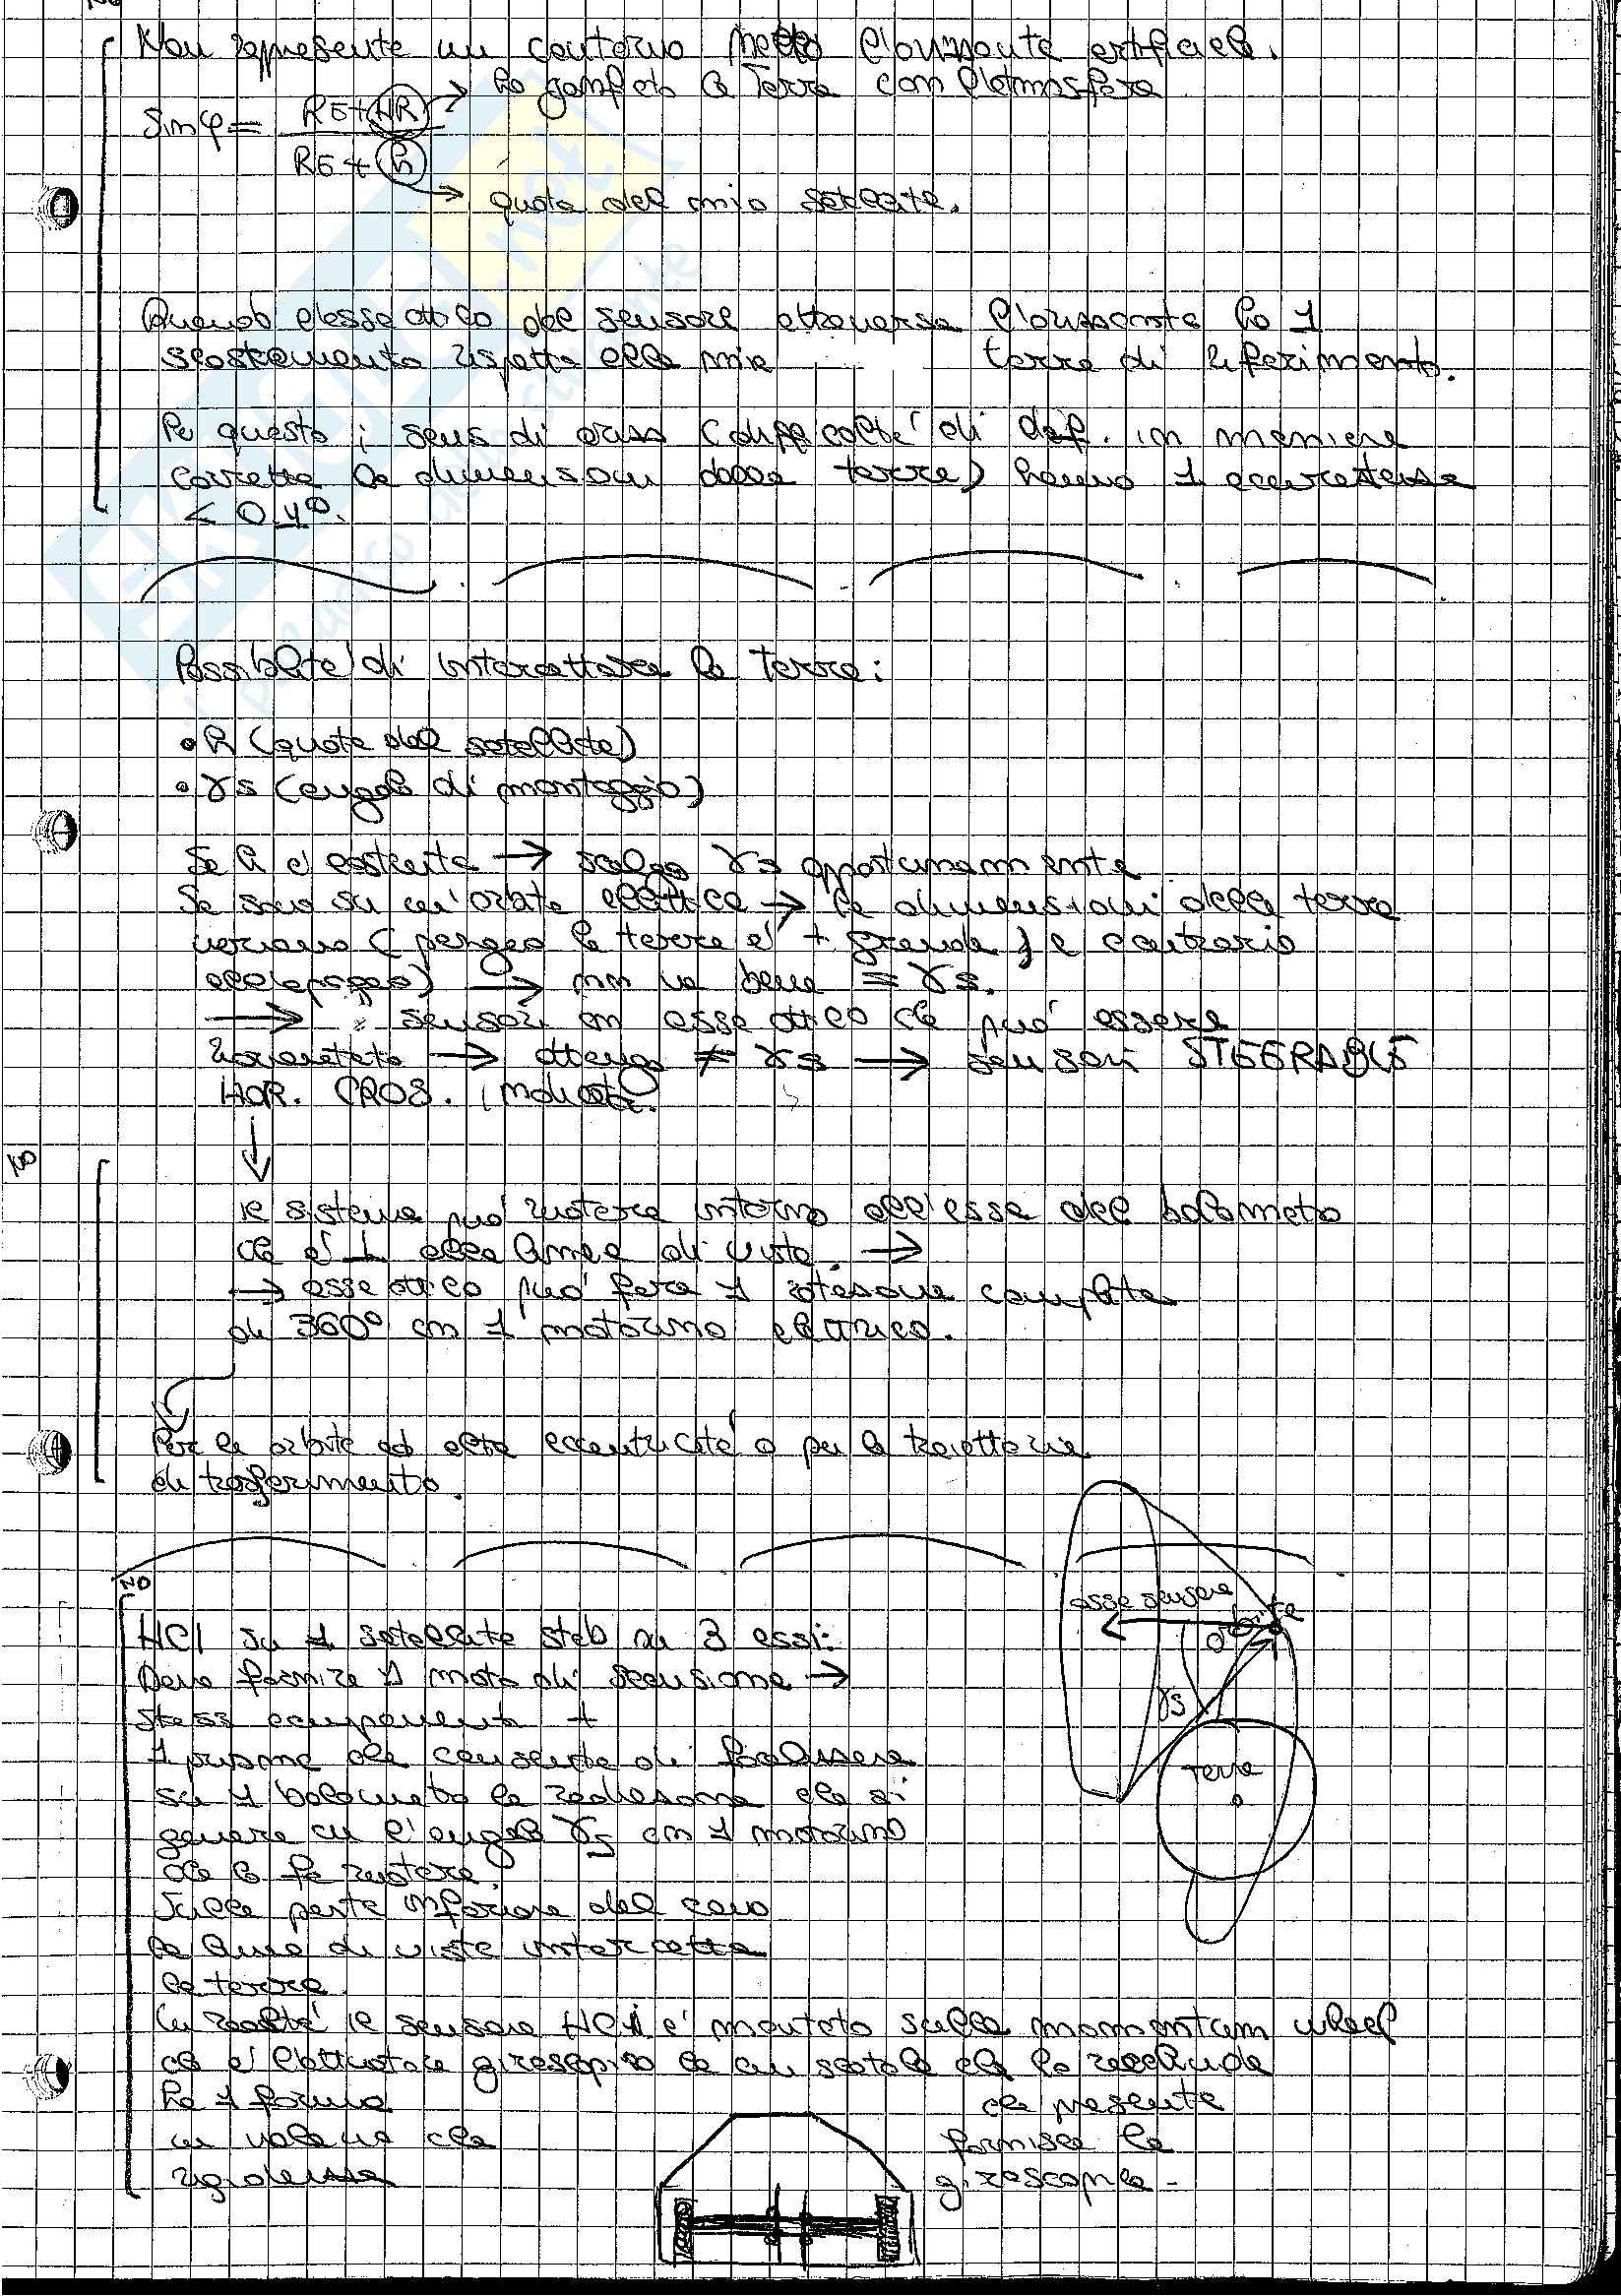 Non rappresenta un contorno netto l'orizzonte artificiale.
ho gonfiato la Terra con l'atmosfera
Sin φ = RE + HR
RE + h
quota del mio satellite.
Quando l'asse ottico del sensore attraversa l'orizzonte ho 1
scostamento rispetto alla mia terra di riferimento.
Per questo i sens di orizz (difficoltà di def. in maniera
corretta la dimensioni della terra) hanno 1 accuratezza
< 0,1°.
Possibilità di intercettare la terra:
• h (quota del satellite)
• γs (angolo di montaggio)
Se h è costante → scelgo γs opportunamente
Se sono su un'orbita ellittica → le dimensioni della terra
variano (perigeo la terra è + grande, e contrario
all'apogeo) → nn va bene = γs.
→ sensori cn asse ottico che può essere
→ ottengo ≠ γs → sensori STEERABLE
HOR. CROS. Indicator.
NO
Il sistema può ruotare intorno all'asse del bolometro
che è ⊥ alla linea di vista. →
→ asse ottico può fare 1 rotazione completa
di 360° cn 1 motorino elettrico.
Per le orbite ad alta eccentricità o per le traiettorie
di trasferimento.
NO
asse sensore
orbita
γs
Terra
HCI su 1 satellite stab su 3 assi:
Deve fornire 1 moto di scansione →
stessi componenti +
1 prisma che consente di focalizzare
su 1 bolometro la radiazione che si
genera cn l'angolo γs cn 1 motorino
che lo fa ruotare.
Sulla parte inferiore del cono
la linea di vista intercetta
la terra.
In realtà il sensore HCI è montato sulla momentum wheel
che è l'attuatore giroscopico la cui scatola che la racchiude
ha 1 forma che presenta
un volano che fornisce la
rigidezza giroscopica.